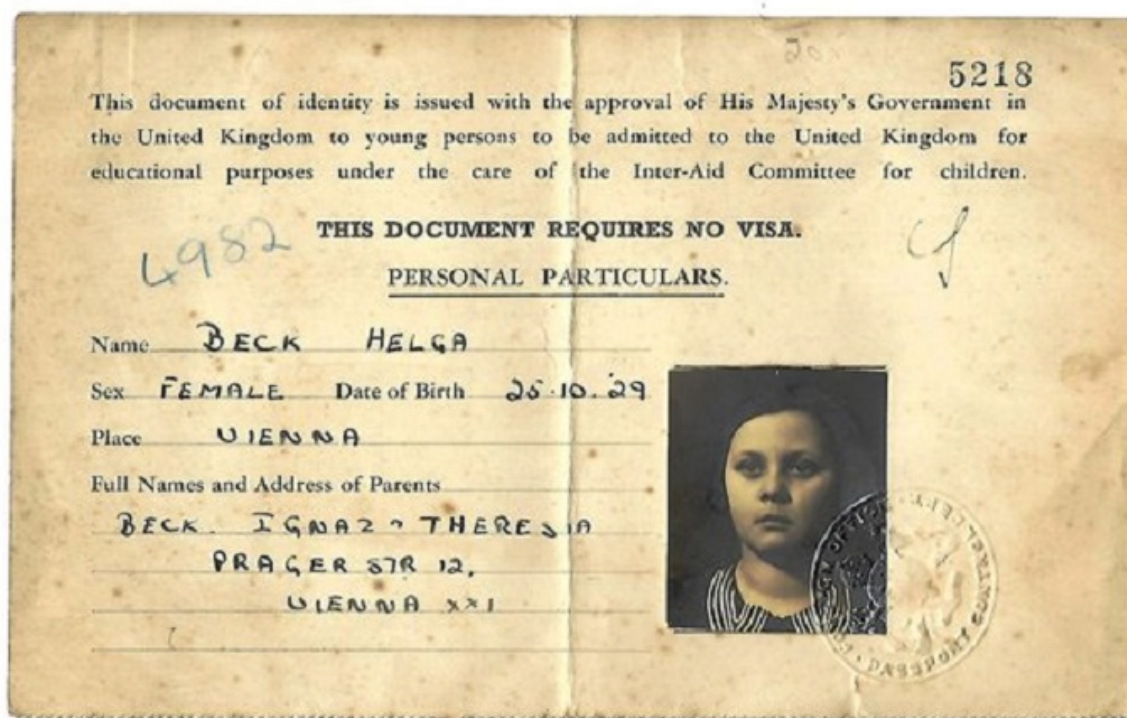 5218
This document of identity is issued with the approval of His Majesty's Government in
the United Kingdom to young persons to be admitted to the United Kingdom for
educational purposes under the care of the Inter-Aid Committee for children.
4982
THIS DOCUMENT REQUIRES NO VISA.
PERSONAL PARTICULARS.
Name BECK HELGA
Sex FEMALE Date of Birth 25.10.29
Place VIENNA
Full Names and Address of Parents
BECK. IGNAZ THERESIA
PRAGER STR 12.
VIENNA XXI
PASSPORT CONTROL